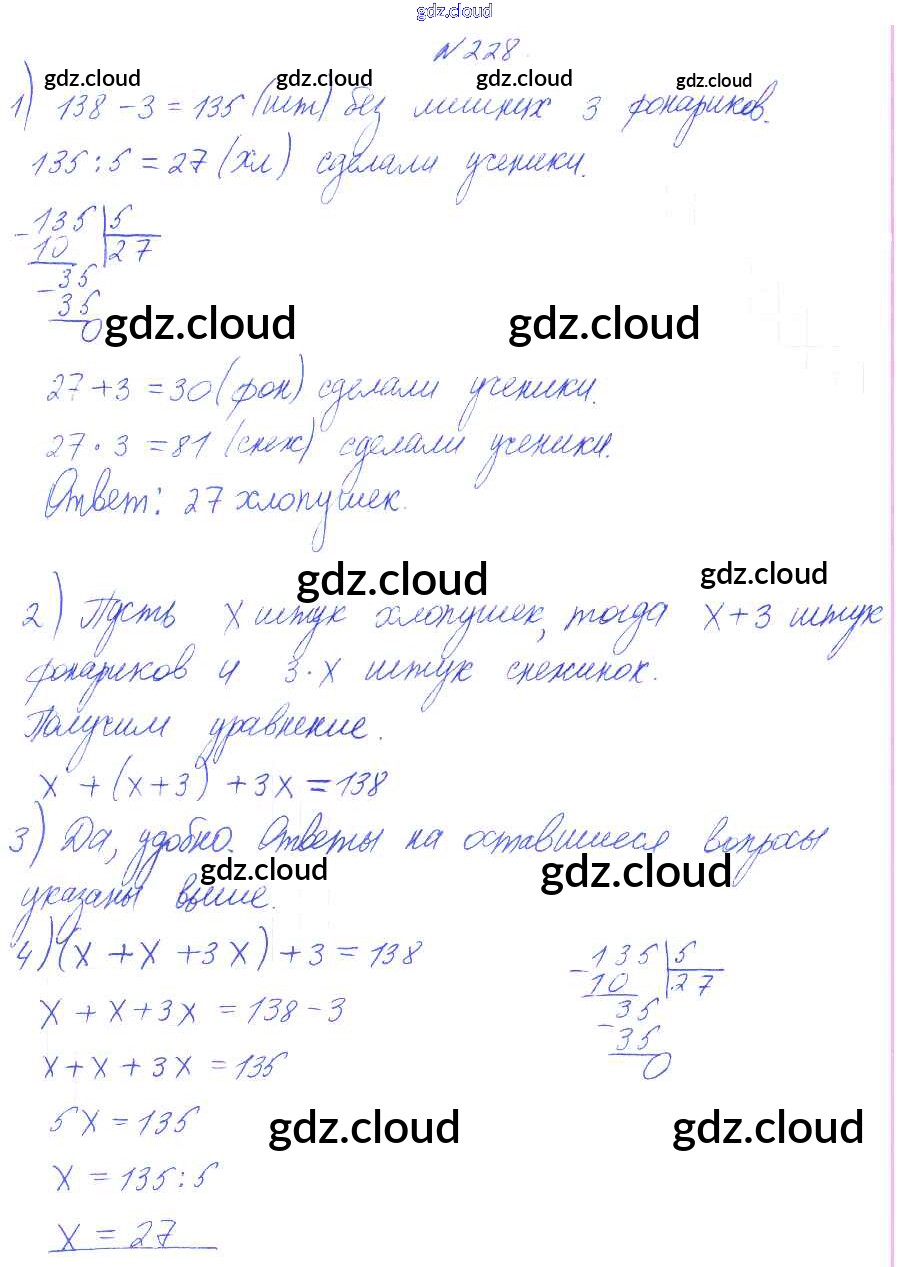 gdz.cloud
№ 228.
gdz.cloud gdz.cloud gdz.cloud gdz.cloud
1) 138 - 3 = 135 (шт) без лишних 3 фонариков.
135 : 5 = 27 (хл) сделали ученики.
- 135 | 5
10 | 27
- 35
35
0
gdz.cloud gdz.cloud
27 + 3 = 30 (фон) сделали ученики.
27 · 3 = 81 (снеж) сделали ученики.
Ответ: 27 хлопушек.
gdz.cloud gdz.cloud
2) Пусть x штук хлопушек, тогда x + 3 штук
фонариков и 3 · x штук снежинок.
Получим уравнение.
x + (x + 3) + 3x = 138
3) Да, удобно. Ответы на оставшиеся вопросы
gdz.cloud gdz.cloud
указаны выше.
4) (x + x + 3x) + 3 = 138
x + x + 3x = 138 - 3
x + x + 3x = 135
5x = 135
x = 135 : 5
x = 27
- 135 | 5
10 | 27
- 35
35
0
gdz.cloud gdz.cloud